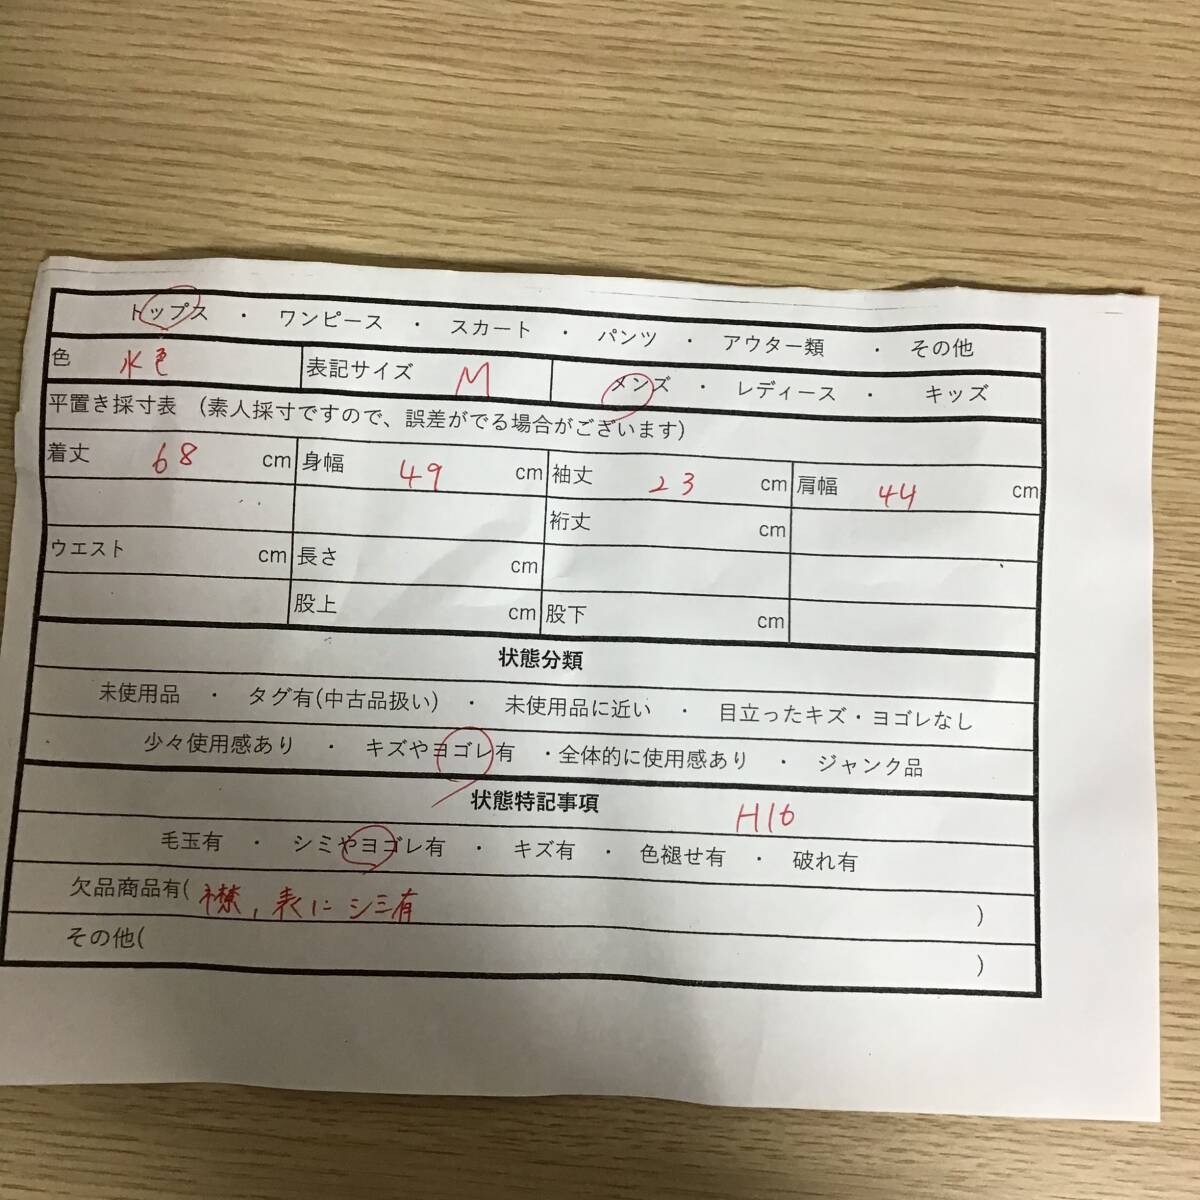 トップス ・ ワンピース ・ スカート ・ パンツ ・ アウター類 ・ その他
色 水色 表記サイズ M メンズ ・ レディース ・ キッズ
平置き採寸表 (素人採寸ですので、誤差がでる場合がございます)
着丈 68 cm 身幅 49 cm 袖丈 23 cm 肩幅 44 cm
裄丈 cm
ウエスト cm 長さ cm
股上 cm 股下 cm
状態分類
未使用品 ・ タグ有(中古品扱い) ・ 未使用品に近い ・ 目立ったキズ・ヨゴレなし
少々使用感あり ・ キズやヨゴレ有 ・全体的に使用感あり ・ ジャンク品
状態特記事項 H16
毛玉有 ・ シミやヨゴレ有 ・ キズ有 ・ 色褪せ有 ・ 破れ有
欠品商品有( 襟, 表に シミ有 )
その他( )